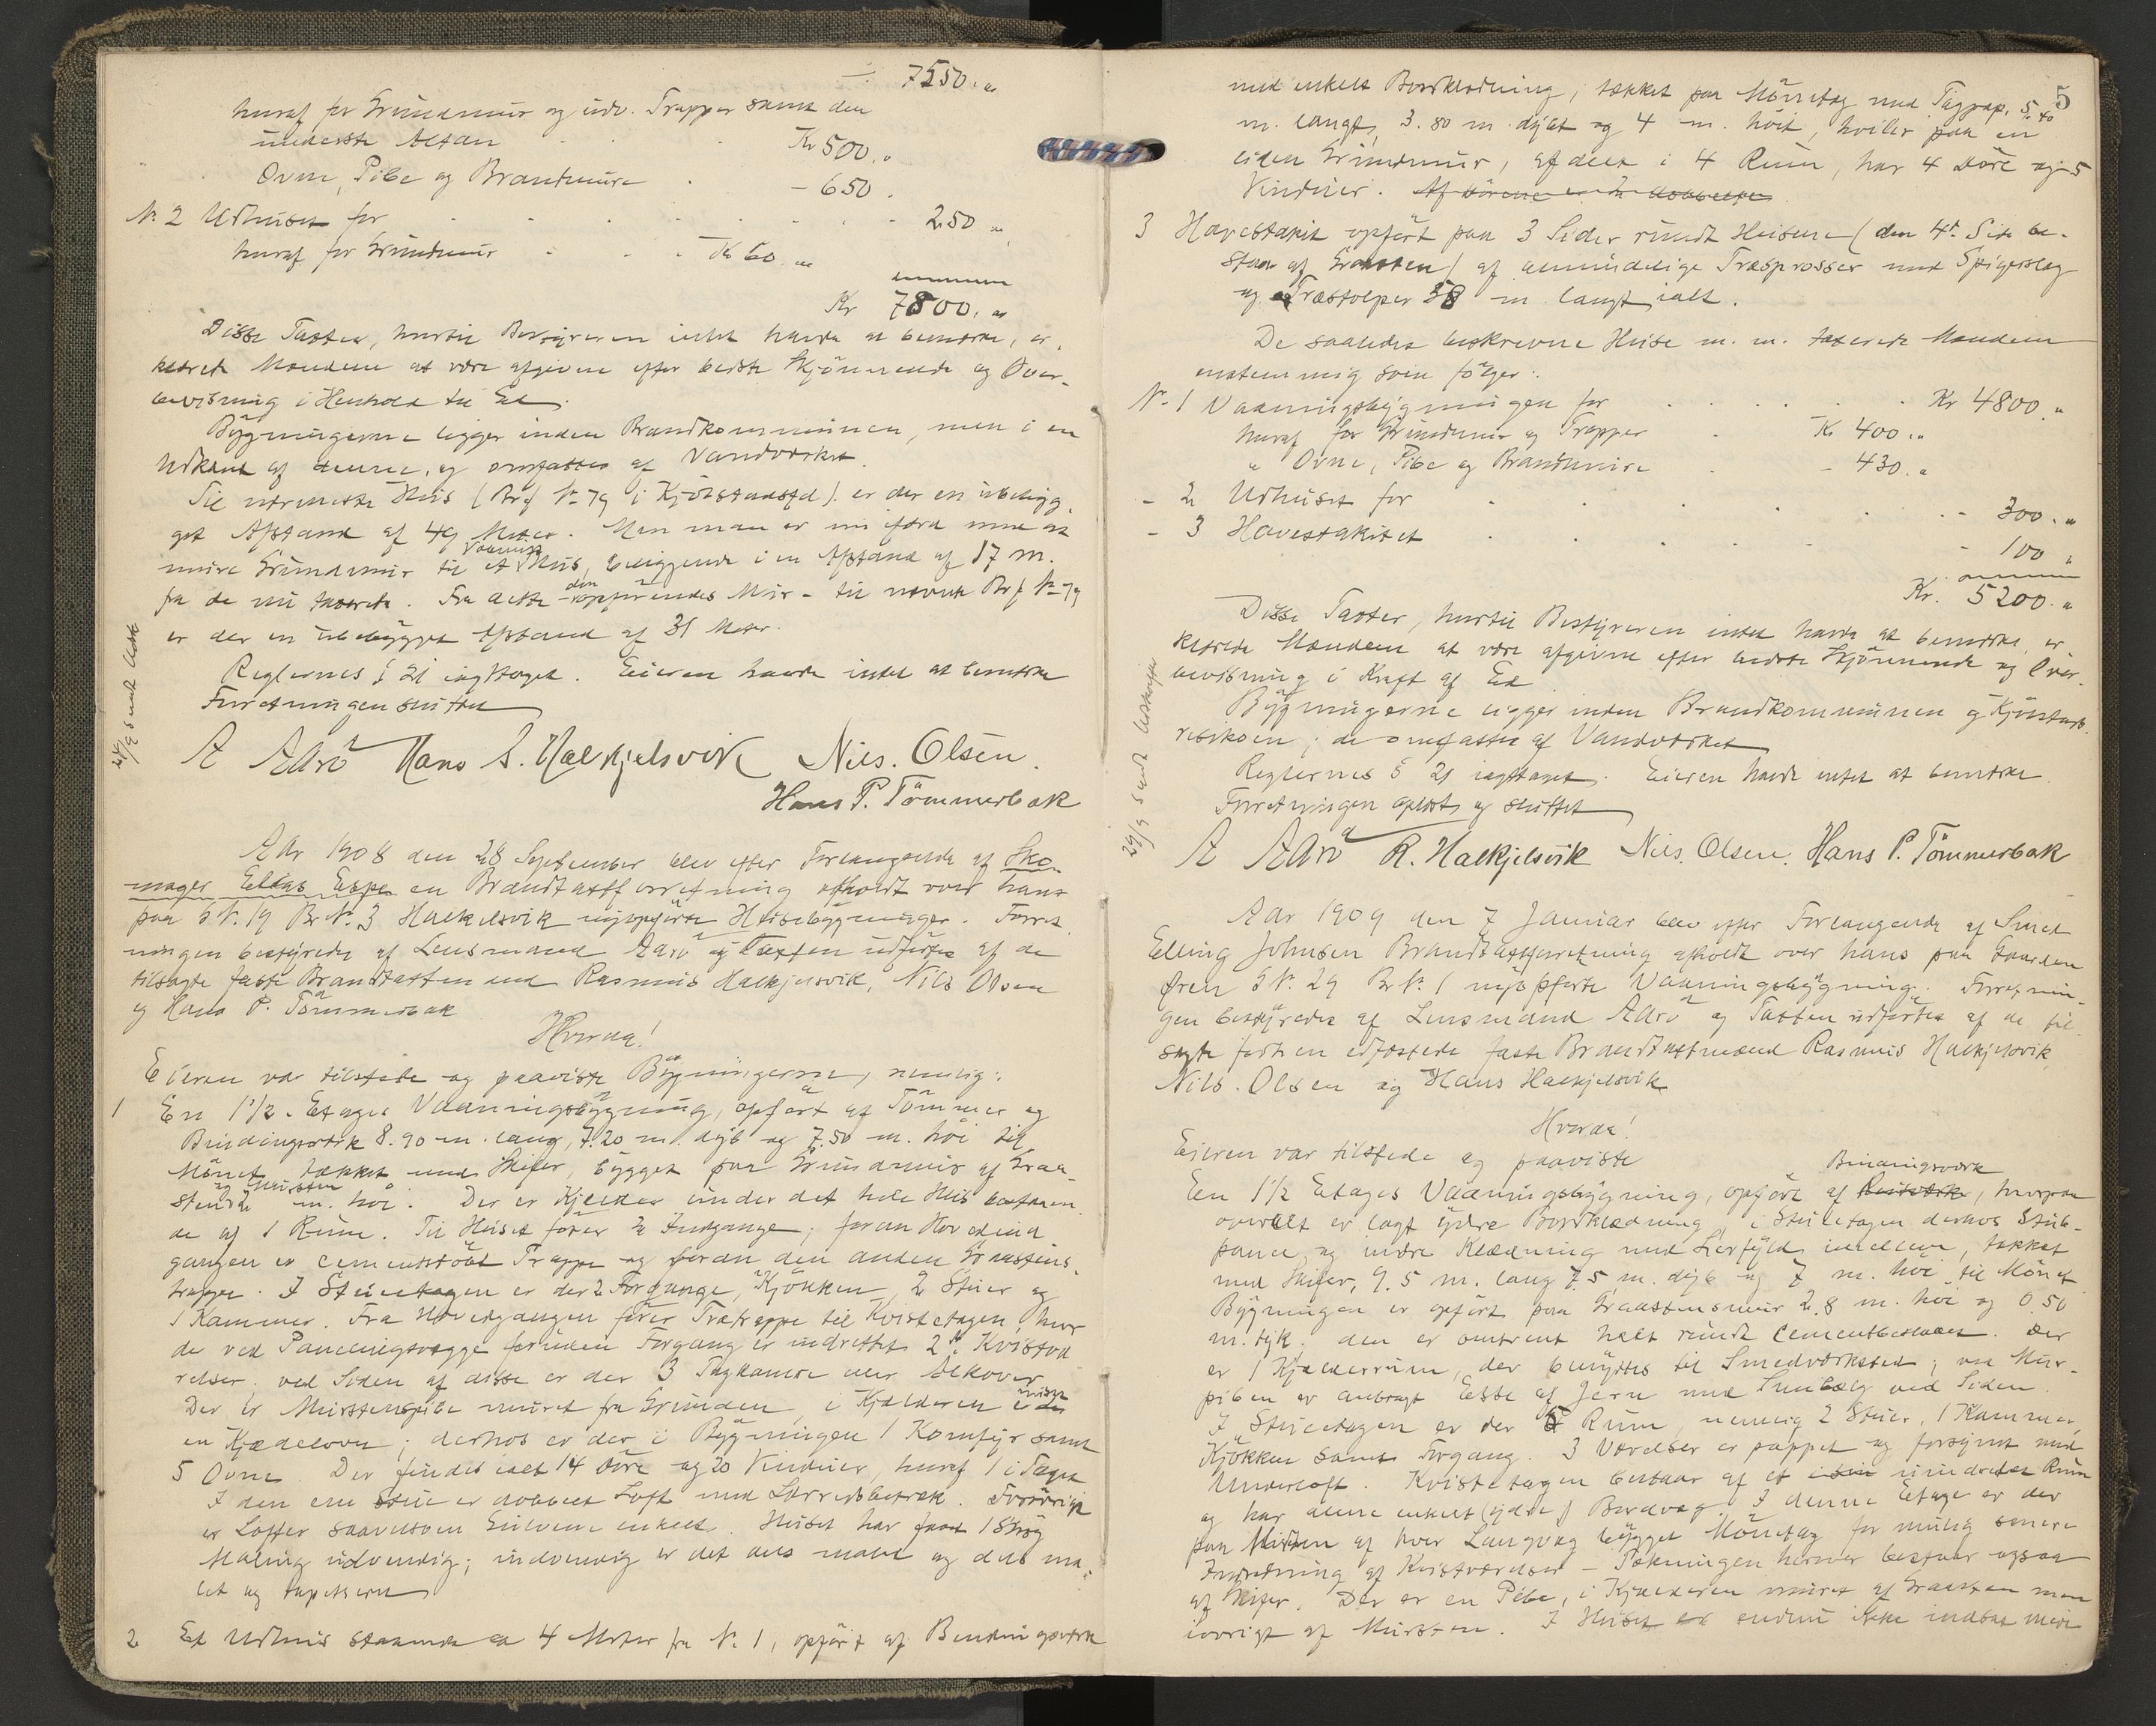 - 7550.
hvoraf for Grundmur og udv. Trapper samt den
underste Altan Kr 500.
Ovne, Pibe og Brandmure - 650.
No 2 Udhuset for - 250
hvoraf for Grundmur Kr 60
Kr 7800.
Disse Taxter, hvortil Bestyreren intet havde at bemærke, er-
klæred Mændene at være afgivne efter bedste Skjönnende og Over-
bevisning i Henhold til Ed.
Bygningerne ligger inden Brandkommunen, men i en
Udkant af denne, og omfattes af Vandværket.
Til nærmeste Hus (Brf No 79 i Kjöbstadsfd). er der en ubebyg-
get Afstand af 49 Meter. Men man er nu ifærd med at
mure Grundmur til et Vaanings Hus, beliggende i en Afstand af 17 m.
fra de nu taxerede. Fra dette - den opförendes Mur - til nævnte Brf No 79
er der en ubebygget Afstand af 31 Meter.
Reglernes § 21 iagttaget. Eieren havde intet at bemærke
Forretningen sluttet
A Aarö Hans S. Halkjelsvik Nils. Olsen.
Hans P. Tömmerbak
Aar 1908 den 28 September blev efter Forlangende af Sko-
mager Ellas Espe en Brandtaxtforretning afholdt over hans
paa G No. 19 Br No. 3 Halkjelsvik nyopförte Husebygninger. Forret-
ningen bestyredes af Lensmand Aarö og Taxten udförtes af de
tilsagte faste Brandtaxtmænd Rasmus Halkjelsvik, Nils Olsen
og Hans P. Tömmerbak
Hvorda!
Eieren var tilstede og paaviste Bygningerne, nemlig:
1 En 1 1/2 - Etages Vaaningsbygning, opfört af Tömmer og
Bindingsværk 8.90 m. lang, 7.20 m. dyb og 7.50 m. höi til
Mönet, tækket med Skifer, bygget paa Grundmur af Graa-
sten og Mursten m. höi. Der er Kjelder under det hele Hus bestaaen-
de af 1 Rum. Til Huset förer 2 Indgange; foran Hovedind-
gangen er cementstöbt Trappe og foran den anden Graastens-
trappe. I Stueetagen er der 2 Forgange, Kjökken, 2 Stuer og
1 Kammer. Fra Hovedgangen förer Trætrappe til Kvistetagen, hvor
der ved Panelingsvægge foruden Forgang er indrettet 2de Kvistvæ-
relser. ved Siden af disse er der 3 Tagkamre eller Alkover.
Der er Murstenspibe muret fra Grunden, i Kjelderen
en Kjædelovn; derhos er der i Bygningen 1 Komfyr samt
5 Ovne. Der findes ialt 14 Döre og 20 Vinduer, hvoraf 1 i Taget
I den ene Stue er dobbelt Loft med Lærredsbetræk. Forövrigt
er Lofter saavelsom Gulvene enkelt. Huset har faaet 1 Strög
Maling udvendig; indvendig er det dels malet og dels ma-
let og tapetseret
2 Et Udhus staaende ca 4 Meter fra No. 1, opfört af Bindingsværk
24/9 sendt Udsk
5
med enkelt Bordklædning, tækket paa Mönetag med Tagpap, 5.40
m. langt, 3.80 m. dybt og 4 m. höit, hviler paa en
liden Grundmur, afdelt i 4 Rum, har 4 Döre og 5
Vinduer. Af Dörene er 2 dobbelte
3 Havestakit opfört paa 3 Sider rundt Husene (den 4de Side be-
staar af Graasten) af almindelige Træsprosser med Spigerslag
og Træstolper 58 m. langt ialt.
De saaledes beskrevne Huse m. m. taxerede Mændene
enstemmig som fölger:
No. 1 Vaaningsbygningen for Kr 4800.
hvoraf for Grundmur og Trapper Kr 400.
" Ovne, Pibe og Brandmure - 430.
- 2 Udhuset for - 300.
- 3 Havestakitet - 100
Kr. 5200.
Disse Taxter, hvortil Bestyreren intet havde at bemærke, er-
klærede Mændene at være afgivne efter bedste Skjönnende og Over-
bevisning i Kraft af Ed
Bygningerne ligger inden Brandkommunen og Kjöbstads-
risikoen; de omfattes af Vandværket
Reglernes § 21 iagttaget. Eieren havde intet at bemærke
Forretningen oplæst og sluttet
A Aarö R. Halkjelsvik Nils. Olsen. Hans P. Tömmerbak
29/9 sendt Udskrift
Aar 1909 den 7 Januar blev efter Forlangende af Smed
Elling Johnsen Brandtaxtforretning afholdt over hans paa Gaarden
Øren G No. 29 Br No. 1 nyopförte Vaaningsbygning. Forretnin-
gen bestyredes af Lensmand Aarö og Taxten udförtes af de til-
sagte forhen edfæstede faste Brandtaxtmænd Rasmus Halkjelsvik
Nils. Olsen og Hans Halkjelsvik
Hvorda!
Eieren var tilstede og paaviste
En 1 1/2 Etages Vaaningsbygning, opfört af Bindingsværk, hvorpaa
overalt er lagt ydre Bordklædning, i Stueetagen derhos Stub-
panel og indre Klædning med Lerfyld imellem, tækket
med Skifer, 9.5 m. lang 7.5 m. dyb og 7 m. höi til Mönet
Bygningen er opfört paa Graastensmur 2.8 m. höi og 0.50
m. tyk. den er omtrent helt rundt cementbeslaaet. Der
er 1 Kjælderrum, der benyttes til Smedværksted; ved Mur-
piben er anbragt Esse af Jern med Smibælg ved Siden
I Stueetagen er der 5 Rum, nemlig 2 Stuer, 1 Kammer,
Kjökken samt Forgang. 3 Værelser er pappet og forsynet med
Underloft. Kvistetagen bestaar af et uindredet Rum
og har alene enkelt (ydre) Bordvæg. I denne Etage er der
paa Midten af hver Langvæg bygget Mönetag for mulig senere
Indredning af Kvistværelser - Tækningen herover bestaar ogsaa
af Skifer. Der er en Pibe, i Kjælderen muret af Graasten men
iövrigt af Mursten. I Huset er endnu ikke indsat mere